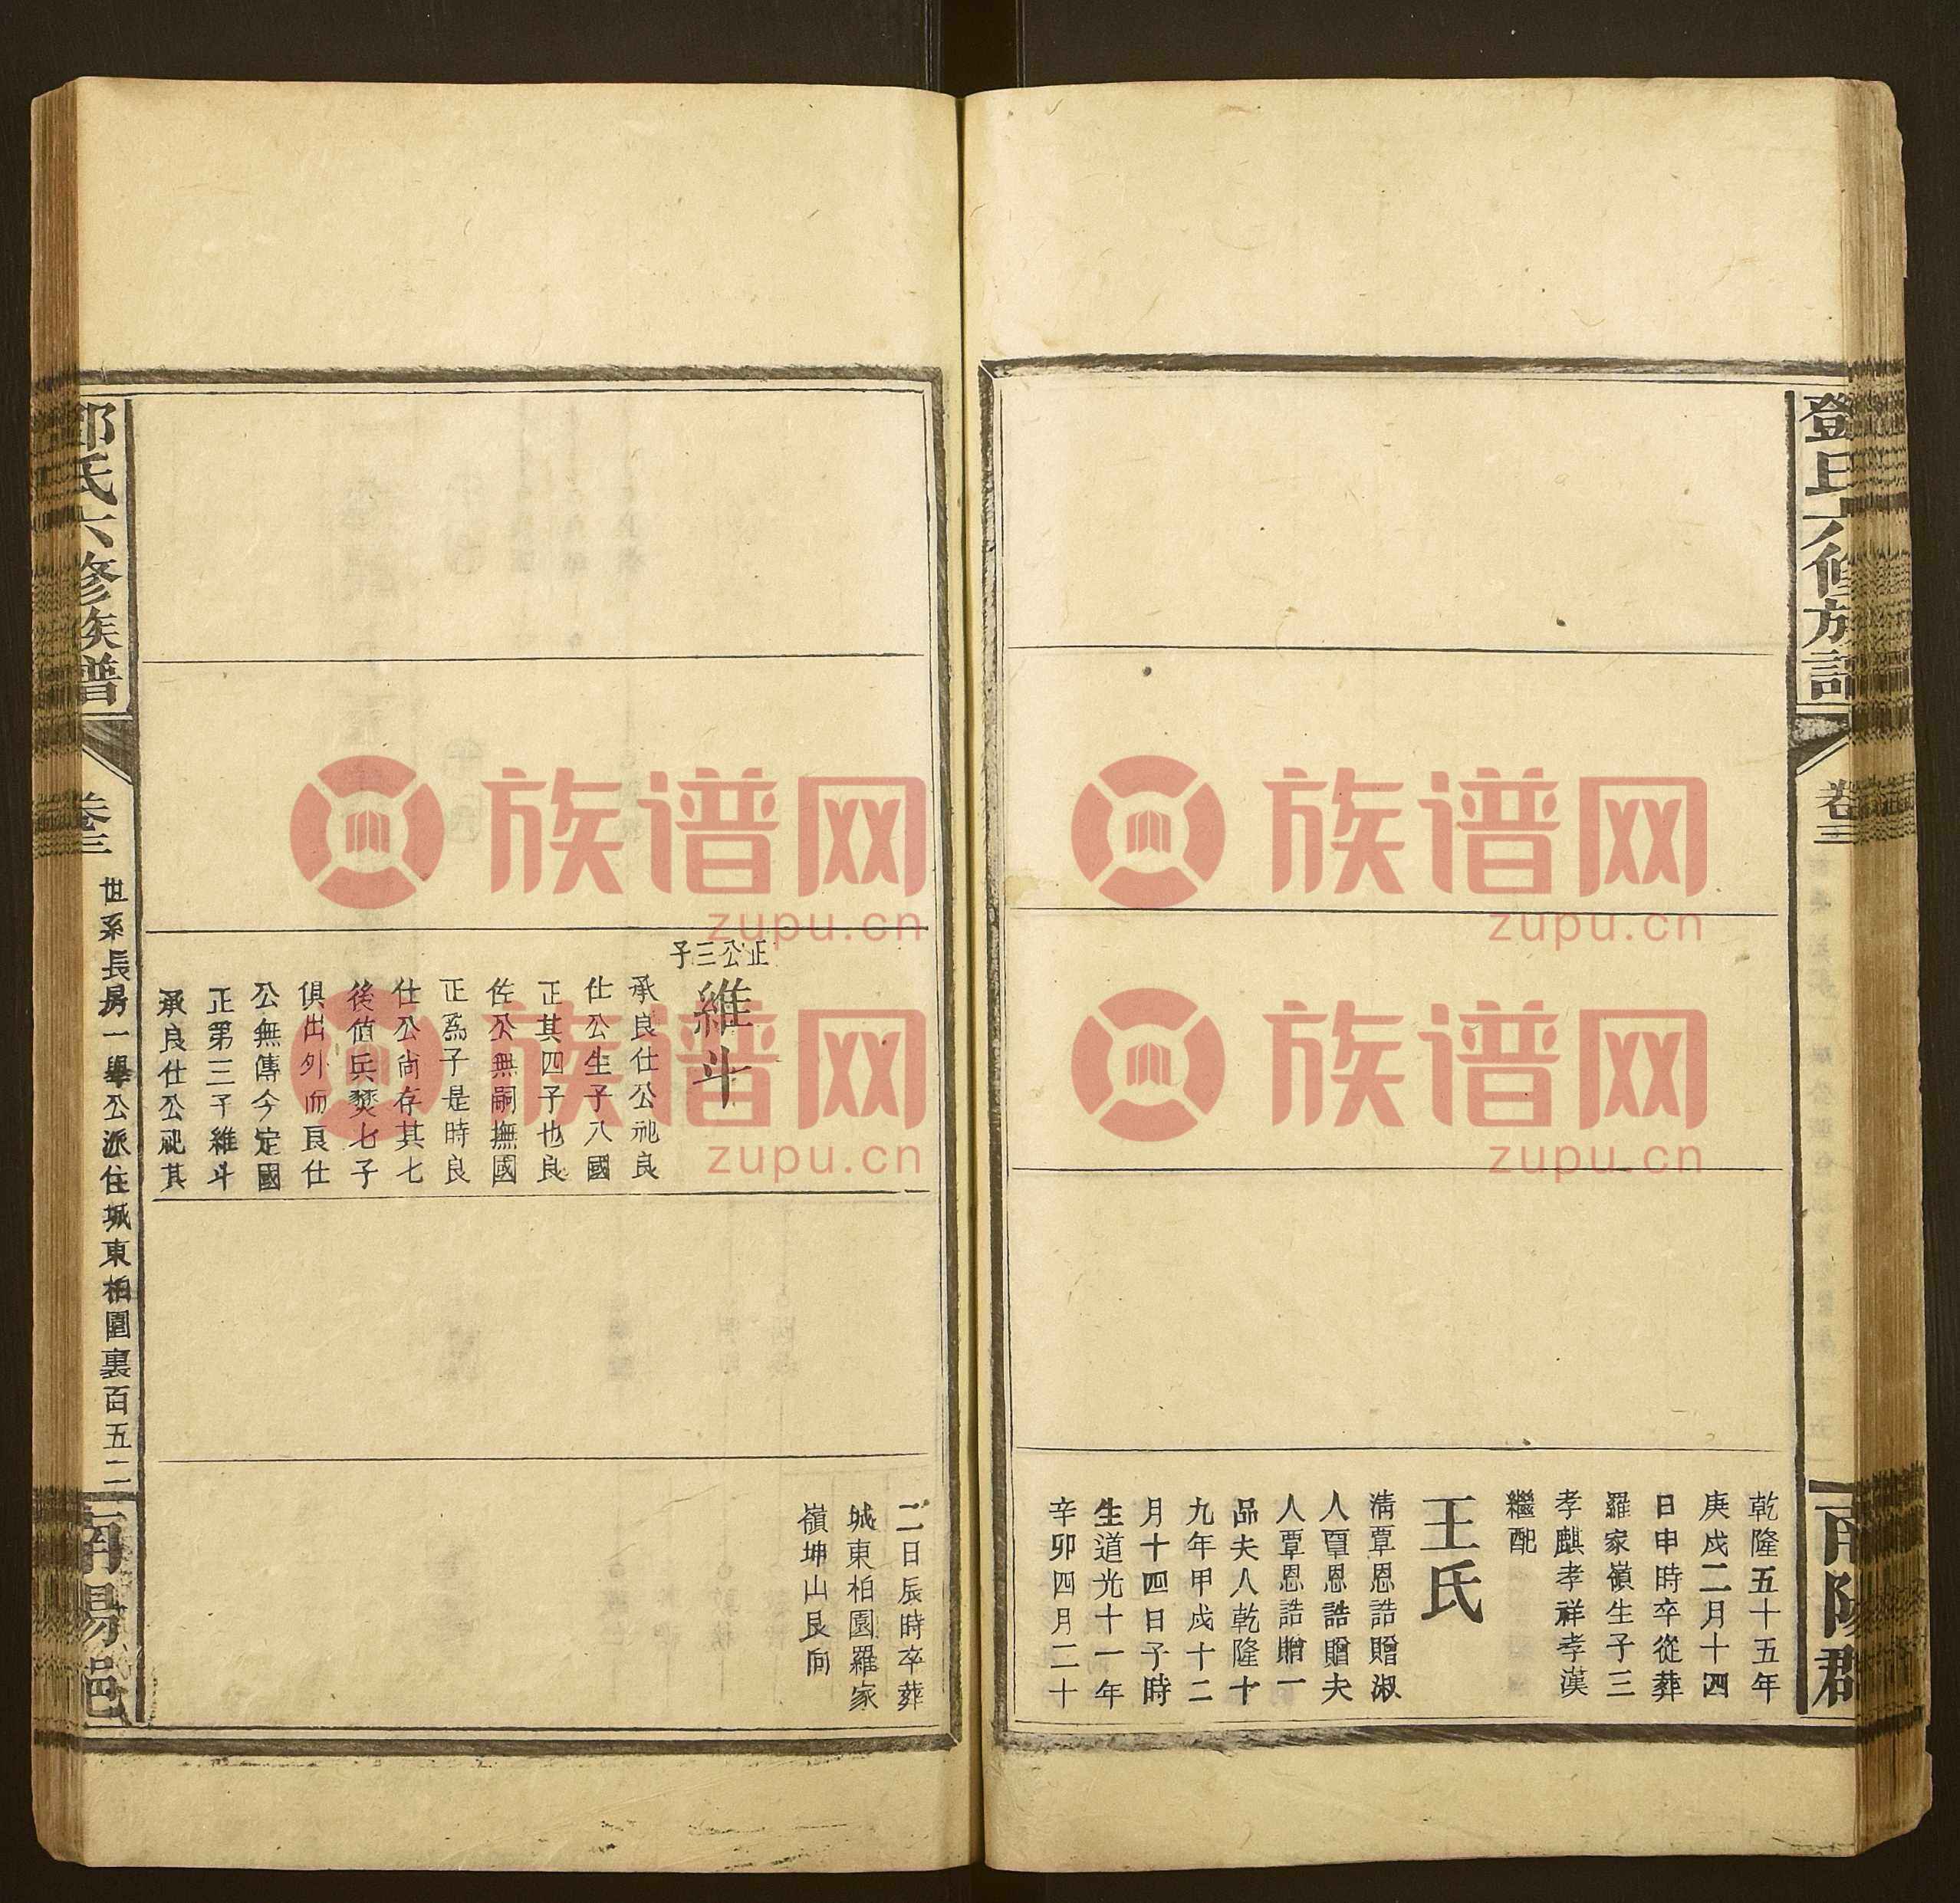 鄧氏六修族譜
卷三
南陽郡
乾隆五十五年
庚戌二月十四
日申時卒從葬
羅家嶺生子三
孝麒孝祥孝漢
繼配
王氏
淸覃恩誥贈淑
人覃恩誥贈夫
人覃恩誥贈一
品夫人乾隆十
九年甲戌十二
月十四日子時
生道光十一年
辛卯四月二十
二日辰時卒葬
城東柏園羅家
嶺坤山艮向
正公三子
維斗
承良仕公祧良
仕公生子八國
正其四子也良
佐公無嗣撫國
正爲子是時良
仕公尚存其七
後值兵燹七子
俱出外而良仕
公無傳今定國
正第三子維斗
承良仕公祀其
鄧氏六修族譜
卷三
世系長房一舉公派住城東柏園裏百五二
南陽邑
族谱网
zupu.cn
族谱网
zupu.cn
族谱网
zupu.cn
族谱网
zupu.cn